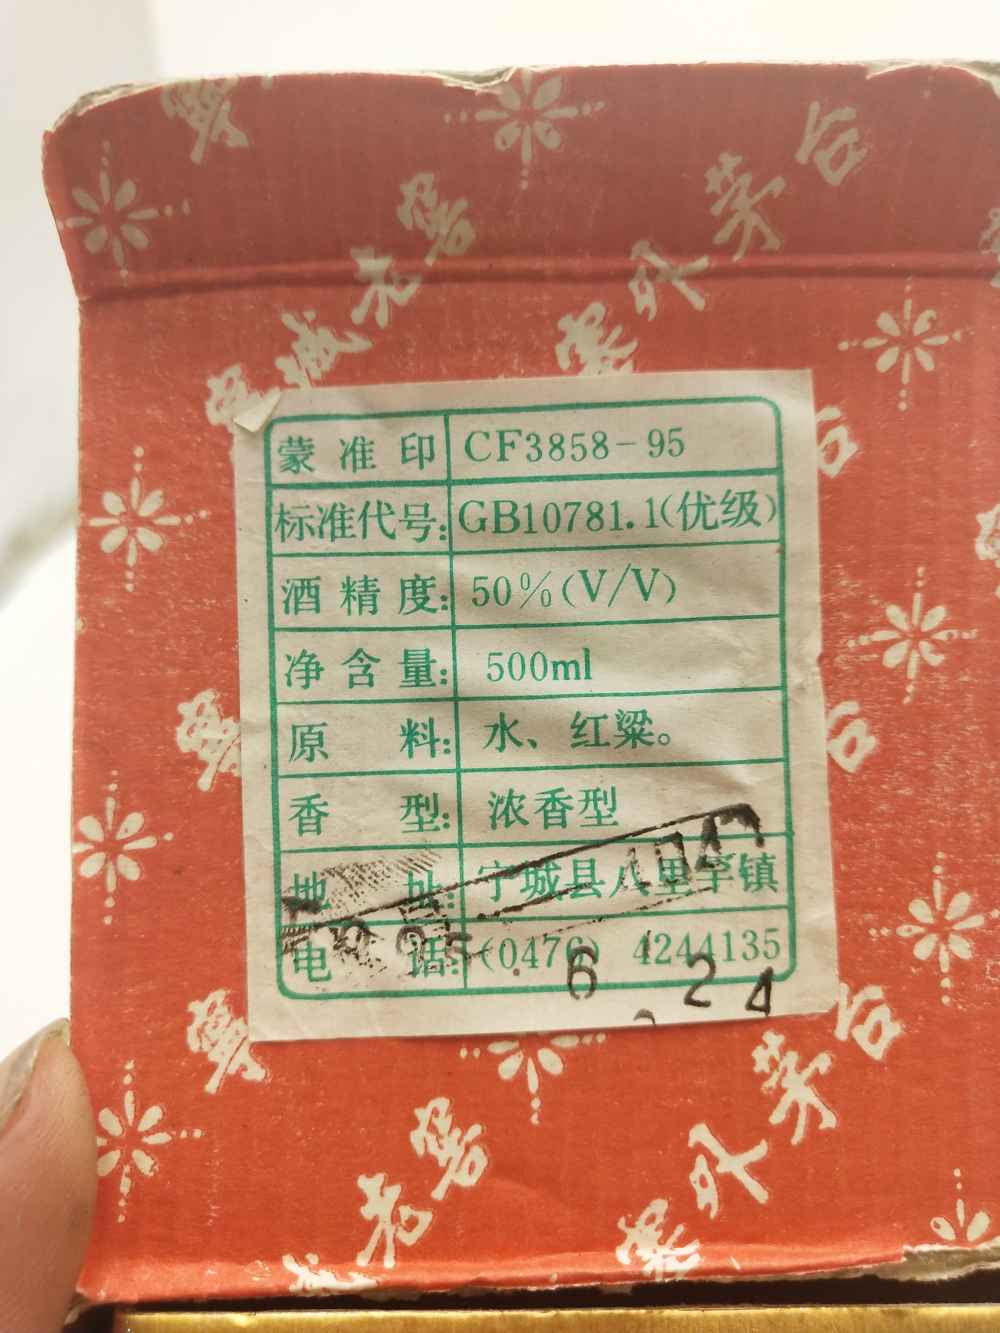 宁城老窖
塞外茅台
蒙准印 CF3858-95
标准代号: GB10781.1(优级)
酒精度: 50%(V/V)
净含量: 500ml
原料: 水、红粱。
香型: 浓香型
地址: 宁城县八里罕镇
电话: (0476) 4244135
6 24
老窖
塞外茅台